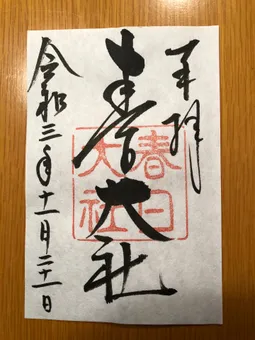 奉拝
春日大社
春日
大社
令和三年十一月二十一日